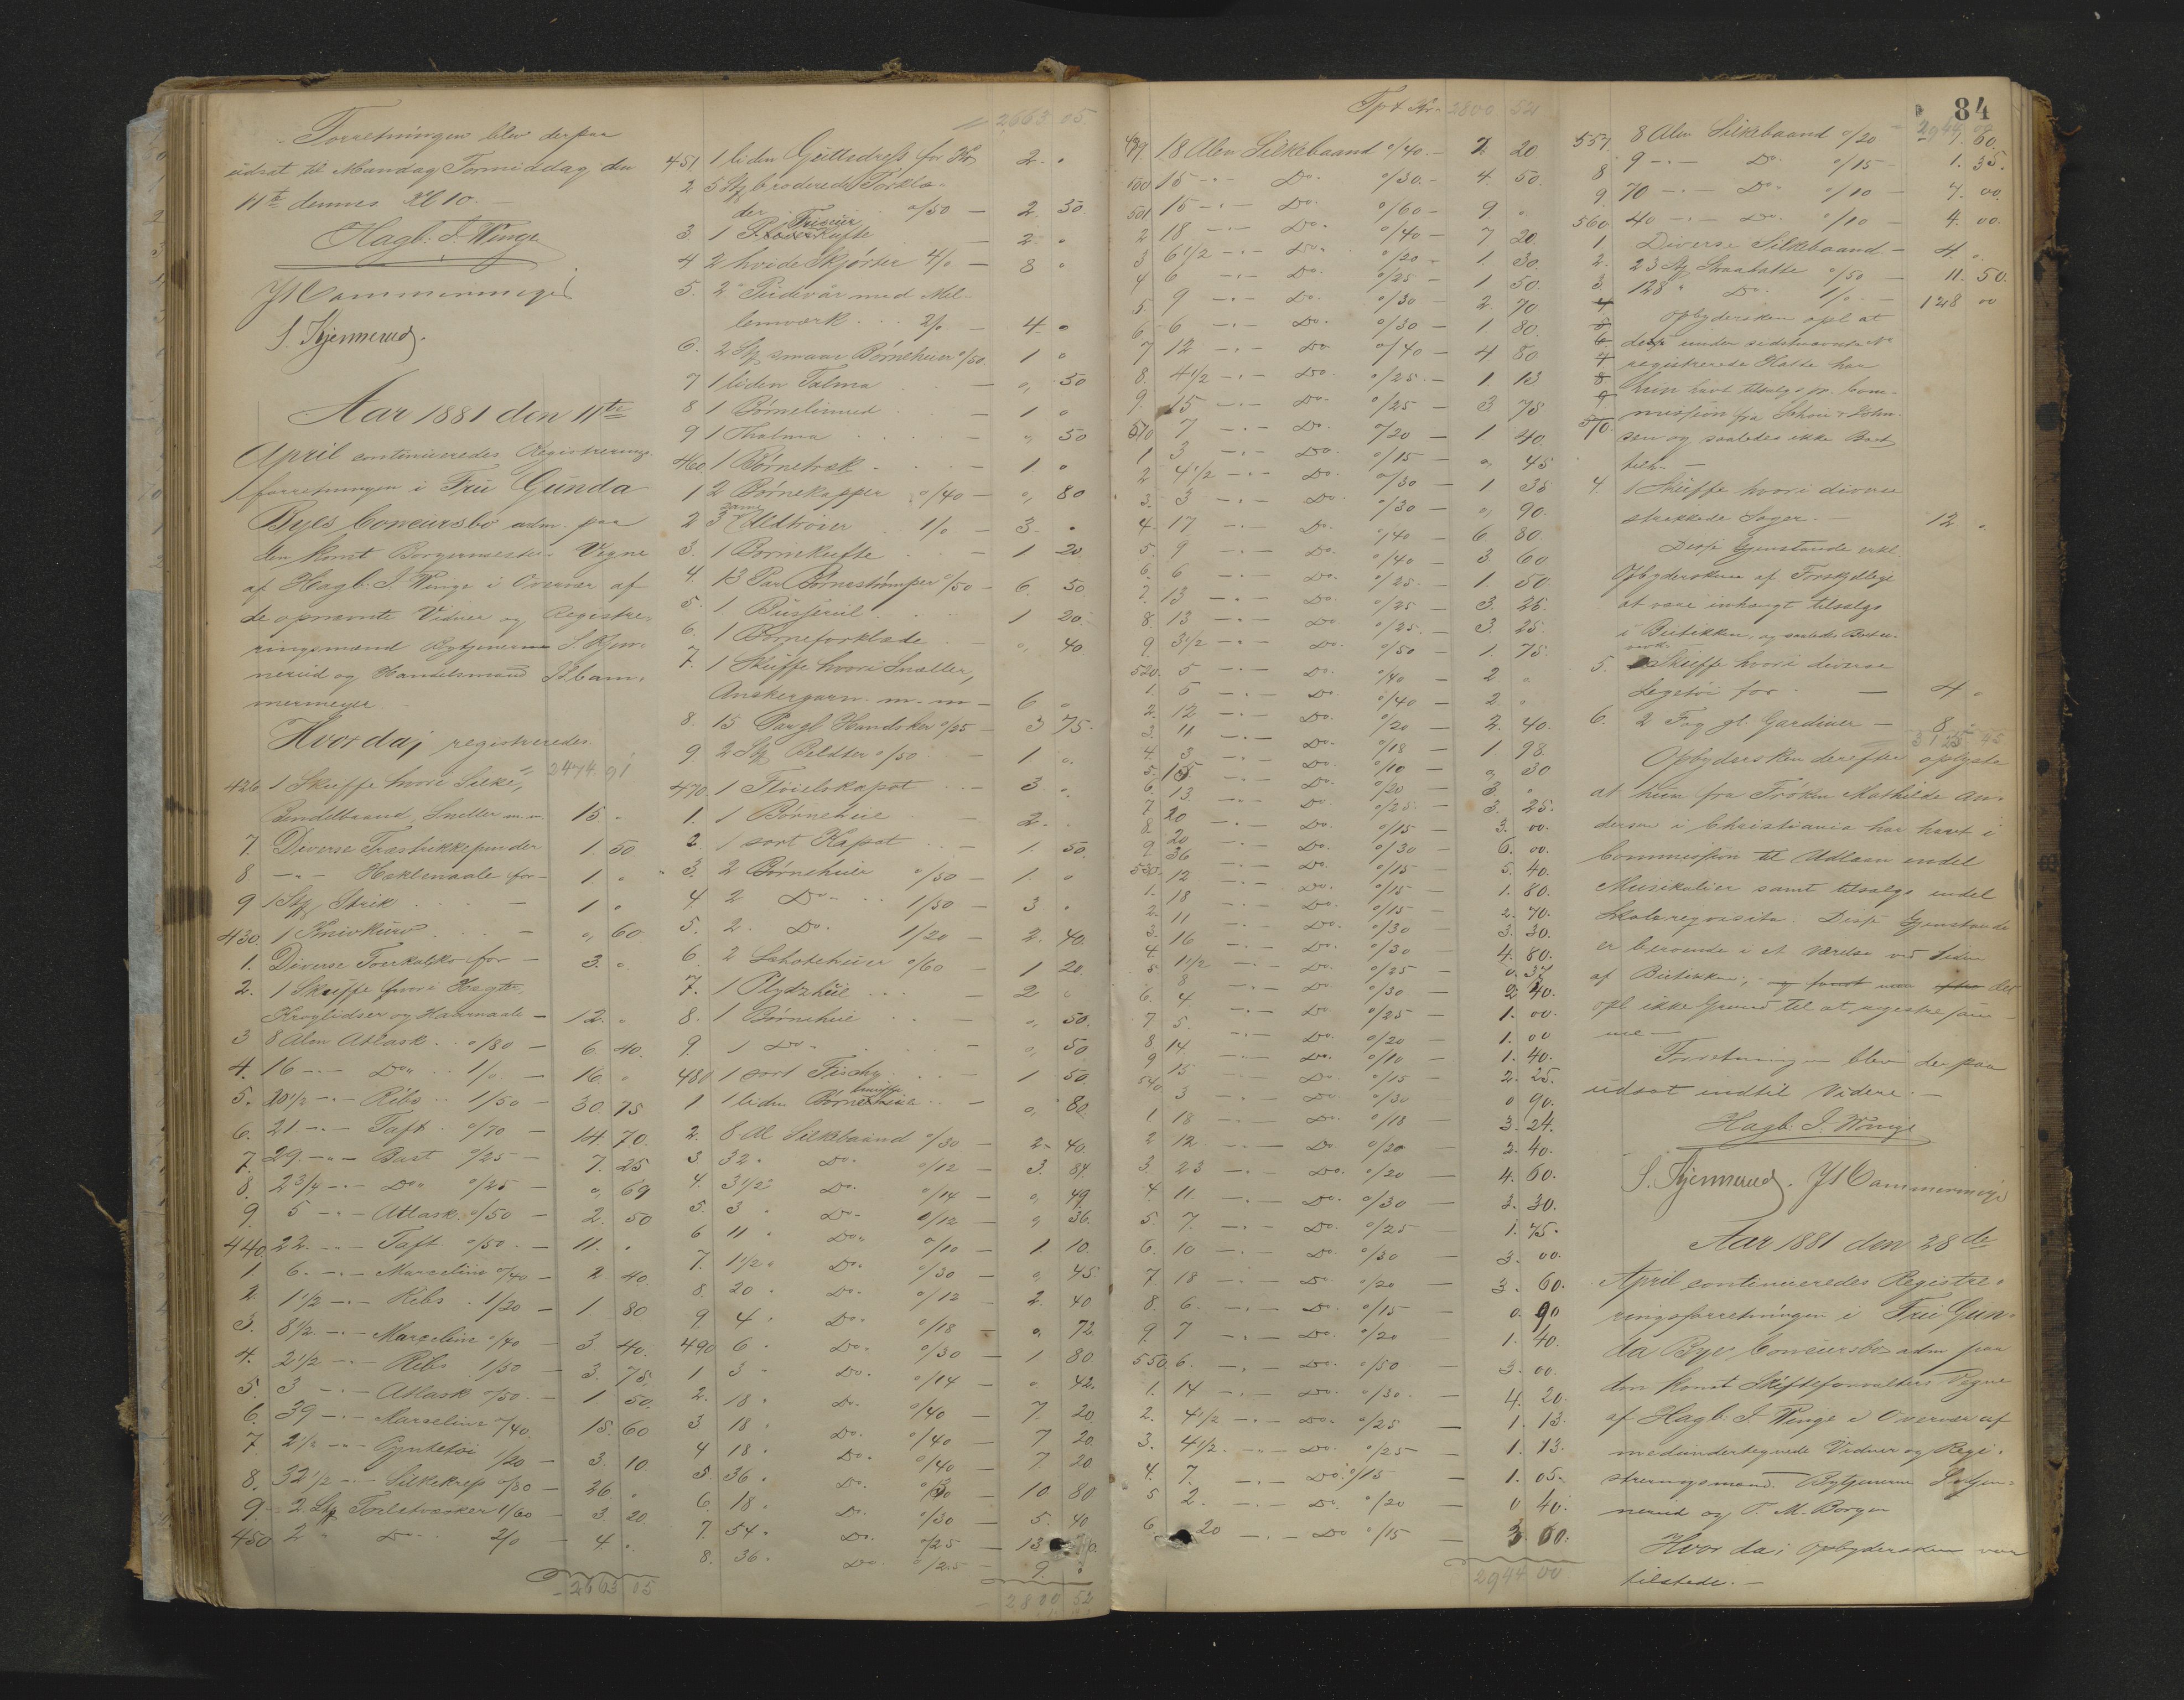 Forretningen blev derpaa
udsat til Mandag Formiddag den
11te dennes Kl 10. —
Hagb: I. Winge
S. Kjennerud.
Aar 1881 den 11te
April continueredes Registrerings-
forretningen i Fru Gunda
Byes Concursbo adm. paa
den konst Borgermesters Vegne
af Hagb: I. Winge i Overvær af
de opnævnte Vidner og Registre-
ringsmænd Bytjenerne S. Kjen-
nerud og Handelsmand J H Cam-
mermeyer. —
Hvorda; registreredes
2474 91
426 1 Skuffe hvori Silke,
Bendelbaand, Sneller m. m. 15 "
7. Diverse Træstrikkepinder 1. 50
8. — " — Heklenaale for — 1. "
9 1 Stk Strik — 1 "
430. 1 Knivkurv — " 60.
1. Diverse for — 3. "
2. 1 Skuffe hvori Hægter,
Kroglidser og Haarnaale — 12. "
3 8 Alen Atlask. 0/80 — 6. 40.
4. 16 — " — Do " 1/0 — 16. "
5. 20 1/2 — " — Ribs 1/50 — 30. 75
6. 21 — " — Taft 0/70 — 14. 70.
7. 29. — " — Bart 0/25 — 7. 25
8. 2 3/4 — " — Do " 0/25 — " 69
9. 5 — " — Atlask. 0/50 — 2. 50
440. 22. — " — Taft 0/50 — 11. "
1 6. — " — Marceline 0/40 — 2 40.
2. 1 1/2 — " — Ribs 1/20 — 1 80
3. 8 1/2 — " — Marceline 0/40 — 3. 40.
4. 2 1/2 — " — Ribs 1/50 — 3. 75.
5. 3 — " — Atlask 0/50 — 1 50.
6. 39 — " — Marceline 0/40. 15. 60
7 2 1/2 — " — Pyntetøi 1/20 — 3. 10.
8. 32 1/2 — " — Silkekrep 0/80 — 26 "
9. 2 Stk Toiletvæsker 1/60 — 3. 20.
450 2 " Do 2/0 — 4. "
2663 05
2,663 05
451 1 liden Guttedress for Kr 2. "
2 5 Stk broderede Forklæ-
der 0/50 — 2. 50.
3. 1 Friseur kufte — 2. "
4 2 hvide Skjørter 4/0 — 8 "
5. 2 " Pudevår med Mel-
lemværk 2/0 — 4. "
6. 2 Stk smaa Børnehuer 0/50. 1 "
7 1 liden Talma — " 50
8 1 Børnelinned — 1 "
9 1 Thalma — " 50
460 1 Børnetræk — 1. "
1 2 Børnekapper 0/40 — " 80
2 3 smaa Uldtrøier 1/0 — 3. "
3. 1 Børnekufte — 1 20.
4. 13 Par Børnestrømper 0/50 — 6. 50
5. 1 1 20.
6. 1 Børneforklæde — " 40
7. 1 Skuffe hvori Sneller,
Ankergarn m. m — 6 "
8. 15 Par gl. Handsker 0/25 — 3 75.
9 2 Stk Belter 0/50 — 1 "
470. 1 Fløielskapot — 3 "
1. 1 Børnehue — 2. "
2. 1 sort Kapot — 1. 50.
3. 2 Børnehuer 0/50 — 1. "
4. 2 Do " 1/50 — 3 "
5. 2. Do. 1/20 — 2. 40.
6. 2 0/60 — 1 20.
7. 1 Plydshue — 2 "
8. 1 Børnehue — " 50.
9. 1 Do " — " 50
480. 1 sort Fischy — 1 50.
1. 1 liden Børne — " 80.
2. 8 Al Silkebaand 0/30 — 2. 40.
3. 32 " Do. 0/12 — 3. 84.
4. 3 1/2 " Do. 0/14 — " 49.
5. 3 " Do. 0/12 — " 36.
6 11 " Do " 0/10 — 1. 10.
7. 1 1/2 " Do. 0/30 — " 45.
8. 20 " Do. 0/12 — 2. 40
9 4 " Do. 0/18 — " 72.
490 6 " Do. 0/30 — 1 80
1 3 " Do. 0/14 — " 42.
2. 18 " Do. 0/40 — 7. 20.
3 18 " Do. 0/40 — 7 20.
4 18 " Do. 0/40 — 7 20
5. 36 " Do. 0/30 — 10 80
6. 18 " Do. 0/30 — 5. 40
7. 54 " Do. 0/25 — 13
8. 36 " Do. 0/25 — 9. "
2800 52
Tpt Kr. 2800 52
499. 18 Alen Silkebaand 0/40. — 7. 20
500 15 — " — Do. 0/30. — 4. 50.
501 15 — " — Do. 0/60 — 9. "
2 18 — " — Do. 0/40 — 7 20.
3 6 1/2 — " — Do. 0/20 — 1 30.
4 6 — " — Do. 0/25 — 1 50.
5. 9 — " — Do. 0/30 — 2. 70
6. 6 — " — Do. 0/30 — 1 80.
7 12 — " — Do 0/40 — 4 80
8. 4 1/2 — " — Do. 0/25. — 1. 13
9. 15 — " — Do. 0/25 — 3. 75
510 7 — " — Do. 0/20 — 1 40.
1 3 — " — Do. 0/15 — " 45
2 4 1/2 — " — Do. 0/30 — 1 35
3. 3 — " — Do. 0/30 — " 90.
4. 17 — " — Do. 0/40 — 6. 80
5. 9 — " — Do. 0/40 — 3. 60
6. 6 — " — Do. 0/25. — 1. 50.
7. 13 — " — Do. 0/25 — 3. 25.
8. 13 — " — Do. 0/25. — 3. 25
9. 3 1/2 — " — Do. 0/50 — 1. 75.
520. 5 — " — Do. 0/40 — 2. "
1. 5 — " — Do. 0/40 — 2. "
2. 12 — " — Do. 0/20 — 2. 40.
3. 11 — " — Do. 0/18 — 1. 98
4. 3 — " — Do. 0/10 — " 30
5. 15 — " — Do. 0/20 — 3. "
6. 13 — " — Do. 0/25. — 3. 25.
7. 20 — " — Do. 0/15 — 3. 00.
8. 20 — " — Do. 0/30 — 6. 00.
9. 36 — " — Do. 0/15 — 5. 40.
530. 12 — " — Do. 0/15 — 1. 80.
1. 18 — " — Do. 0/15 — 2. 70.
2. 11 — " — Do. 0/30 — 3. 30.
3. 16 — " — Do. 0/30 — 4. 80.
4 1 1/2 — " — Do. 0/25 — 0. 37
5 8 — " — Do. 0/30 — 2. 40.
6. 4 — " — Do 0/25 — 1. 00.
7 5. — " — Do. 0/20 — 1. 00
8 14 — " — Do. 0/10 — 1. 40.
9 15 — " — Do. 0/15 — 2. 25.
540. 3 — " — Do. 0/30 — 0 90.
1 18 — " — Do. 0/18 — 3. 24.
2 12 — " — Do 0/20 — 2. 40.
3. 23 — " — Do. 0/20 — 4. 60.
4. 11. — " — Do. 0/30 — 3. 30.
5. 7. — " — Do. 0/25 — 1. 75.
6. 10 — " — Do. 0/30 — 3. 00.
7. 18 — " — Do. 0/20 — 3. 60.
8. 6. — " — Do. 0/15 — 0. 90
9. 7 — " — Do. 0/20 — 1. 40.
550. 6. — " — Do. 0/50 — 3. 00.
1. 14 — " — Do. 0/30. — 4. 20.
2. 4 1/2 — " — Do. 0/25 — 1. 13.
3. 4 1/2. — " — Do. 0/25 — 1. 13.
4. 7. — " — Do. 0/15 — 1. 05.
5 2. — " — Do. 0/20 — 0 40.
6. 20 — " — Do 0/15 — 3. 00.
2944 00
84
2944 00
557. 8 Alen Silkebaand 0/20 — 1. 60.
8 9 — " — Do. 0/15 — 1. 35.
9. 70 — " — Do. 0/10 — 7. 00.
560. 40 — " — Do. 0/10 — 4. 00.
1. Diverse Silkebaand — 4. "
2. 23 Stk Straahatte 0/50 — 11. 50.
3. 128 " Do. 1/0 — 128 00
Opbydersken opl at
disse under sidstnævnte No
registrerede Hatte har
hun havt tilsalgs pr. Com-
mission fra Schou & John-
sen og saaledes ikke Boet
tilh. —
4. 1 Skuffe hvori diverse
strikkede Sager. — 12 "
Disse Gjenstande erkl.
Opbydersken af Forskjellige
at være indbragt tilsalgs
i Butikken, og saaledes Boet u-
vedk.
5. Skuffe hvori diverse
Legetøi for — 4 "
6. 2 Fag gl. Gardiner — 8 "
3125 45
Opbydersken derefter oplyste
at hun fra Frøken Mathilde An-
dersen i Christiania har havt i
Commission til Udlaan endel
Musikalier samt tilsalgs endel
Skolereqvisita. Disse Gjenstande
er beroende i et Værelse ved Siden
af Butikken;
opl ikke Grund til at registre sam-
me —
Forretningen blev derpaa
udsat indtil Videre. —
Hagb. I. Winge
S. Kjennerud. J H Cammermeyer
Aar 1881 den 28de
April continueredes Registre-
ringsforretningen i Fru Gun-
da Byes Concursbo adm paa
den konst Skifteforvalters Vegne
af Hagb: I. Winge i Overvær af
medundertegnede Vidner og Regi-
streringsmænd Bytjenerne S. Kjen-
nerud og T. M. Borgen
Hvor da; Opbydersken var
tilstede. —